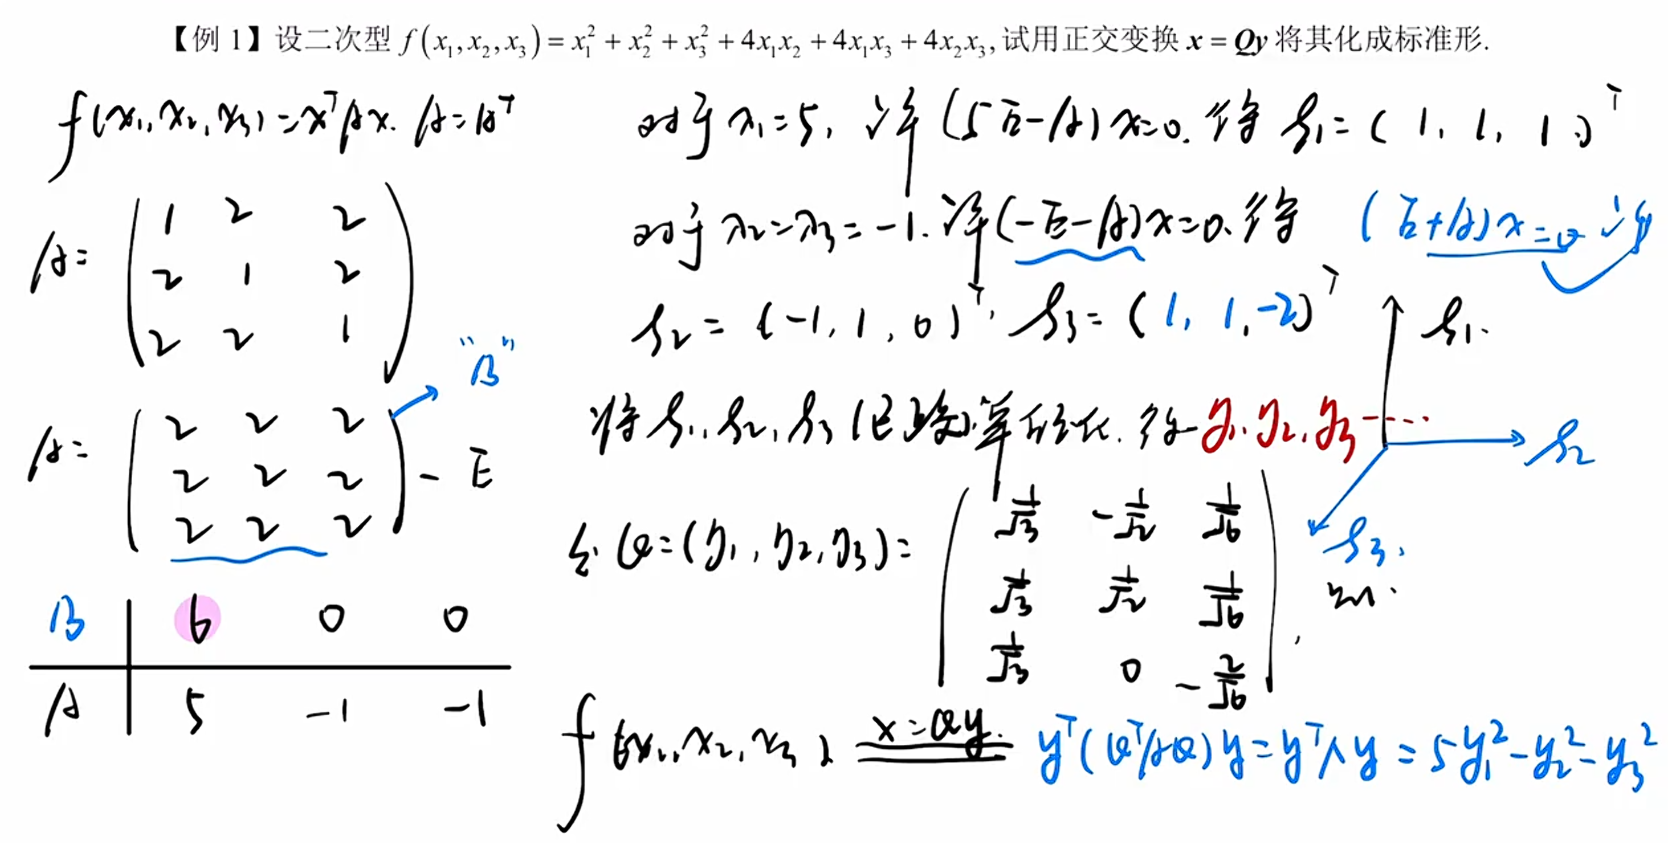 【例 1】设二次型 f(x₁,x₂,x₃)=x₁²+x₂²+x₃²+4x₁x₂+4x₁x₃+4x₂x₃, 试用正交变换 x=Qy 将其化成标准形.
f(x₁,x₂,x₃)=xᵀAx. A=Aᵀ
A=
1 2 2
2 1 2
2 2 1
"B"
A=
2 2 2
2 2 2
2 2 2
- E
B 6 0 0
A 5 -1 -1
对于λ₁=5, 解(5E-A)x=0. 得 ξ₁=(1, 1, 1)ᵀ
对于λ₂=λ₃=-1. 解(-E-A)x=0. 得 (E+A)x=0
ξ₂=(-1, 1, 0)ᵀ, ξ₃=(1, 1, -2)ᵀ
ξ₁.
将ξ₁, ξ₂, ξ₃(已正交)单位化. 得 η₁, η₂, η₃ ....
ξ₂
ξ₃.
令 Q=(η₁, η₂, η₃)=
1/√3 -1/√2 1/√6
1/√3 1/√2 1/√6
1/√3 0 -2/√6
,
f(x₁,x₂,x₃) x=Qy. yᵀ(QᵀAQ)y=yᵀΛy=5y₁²-y₂²-y₃²